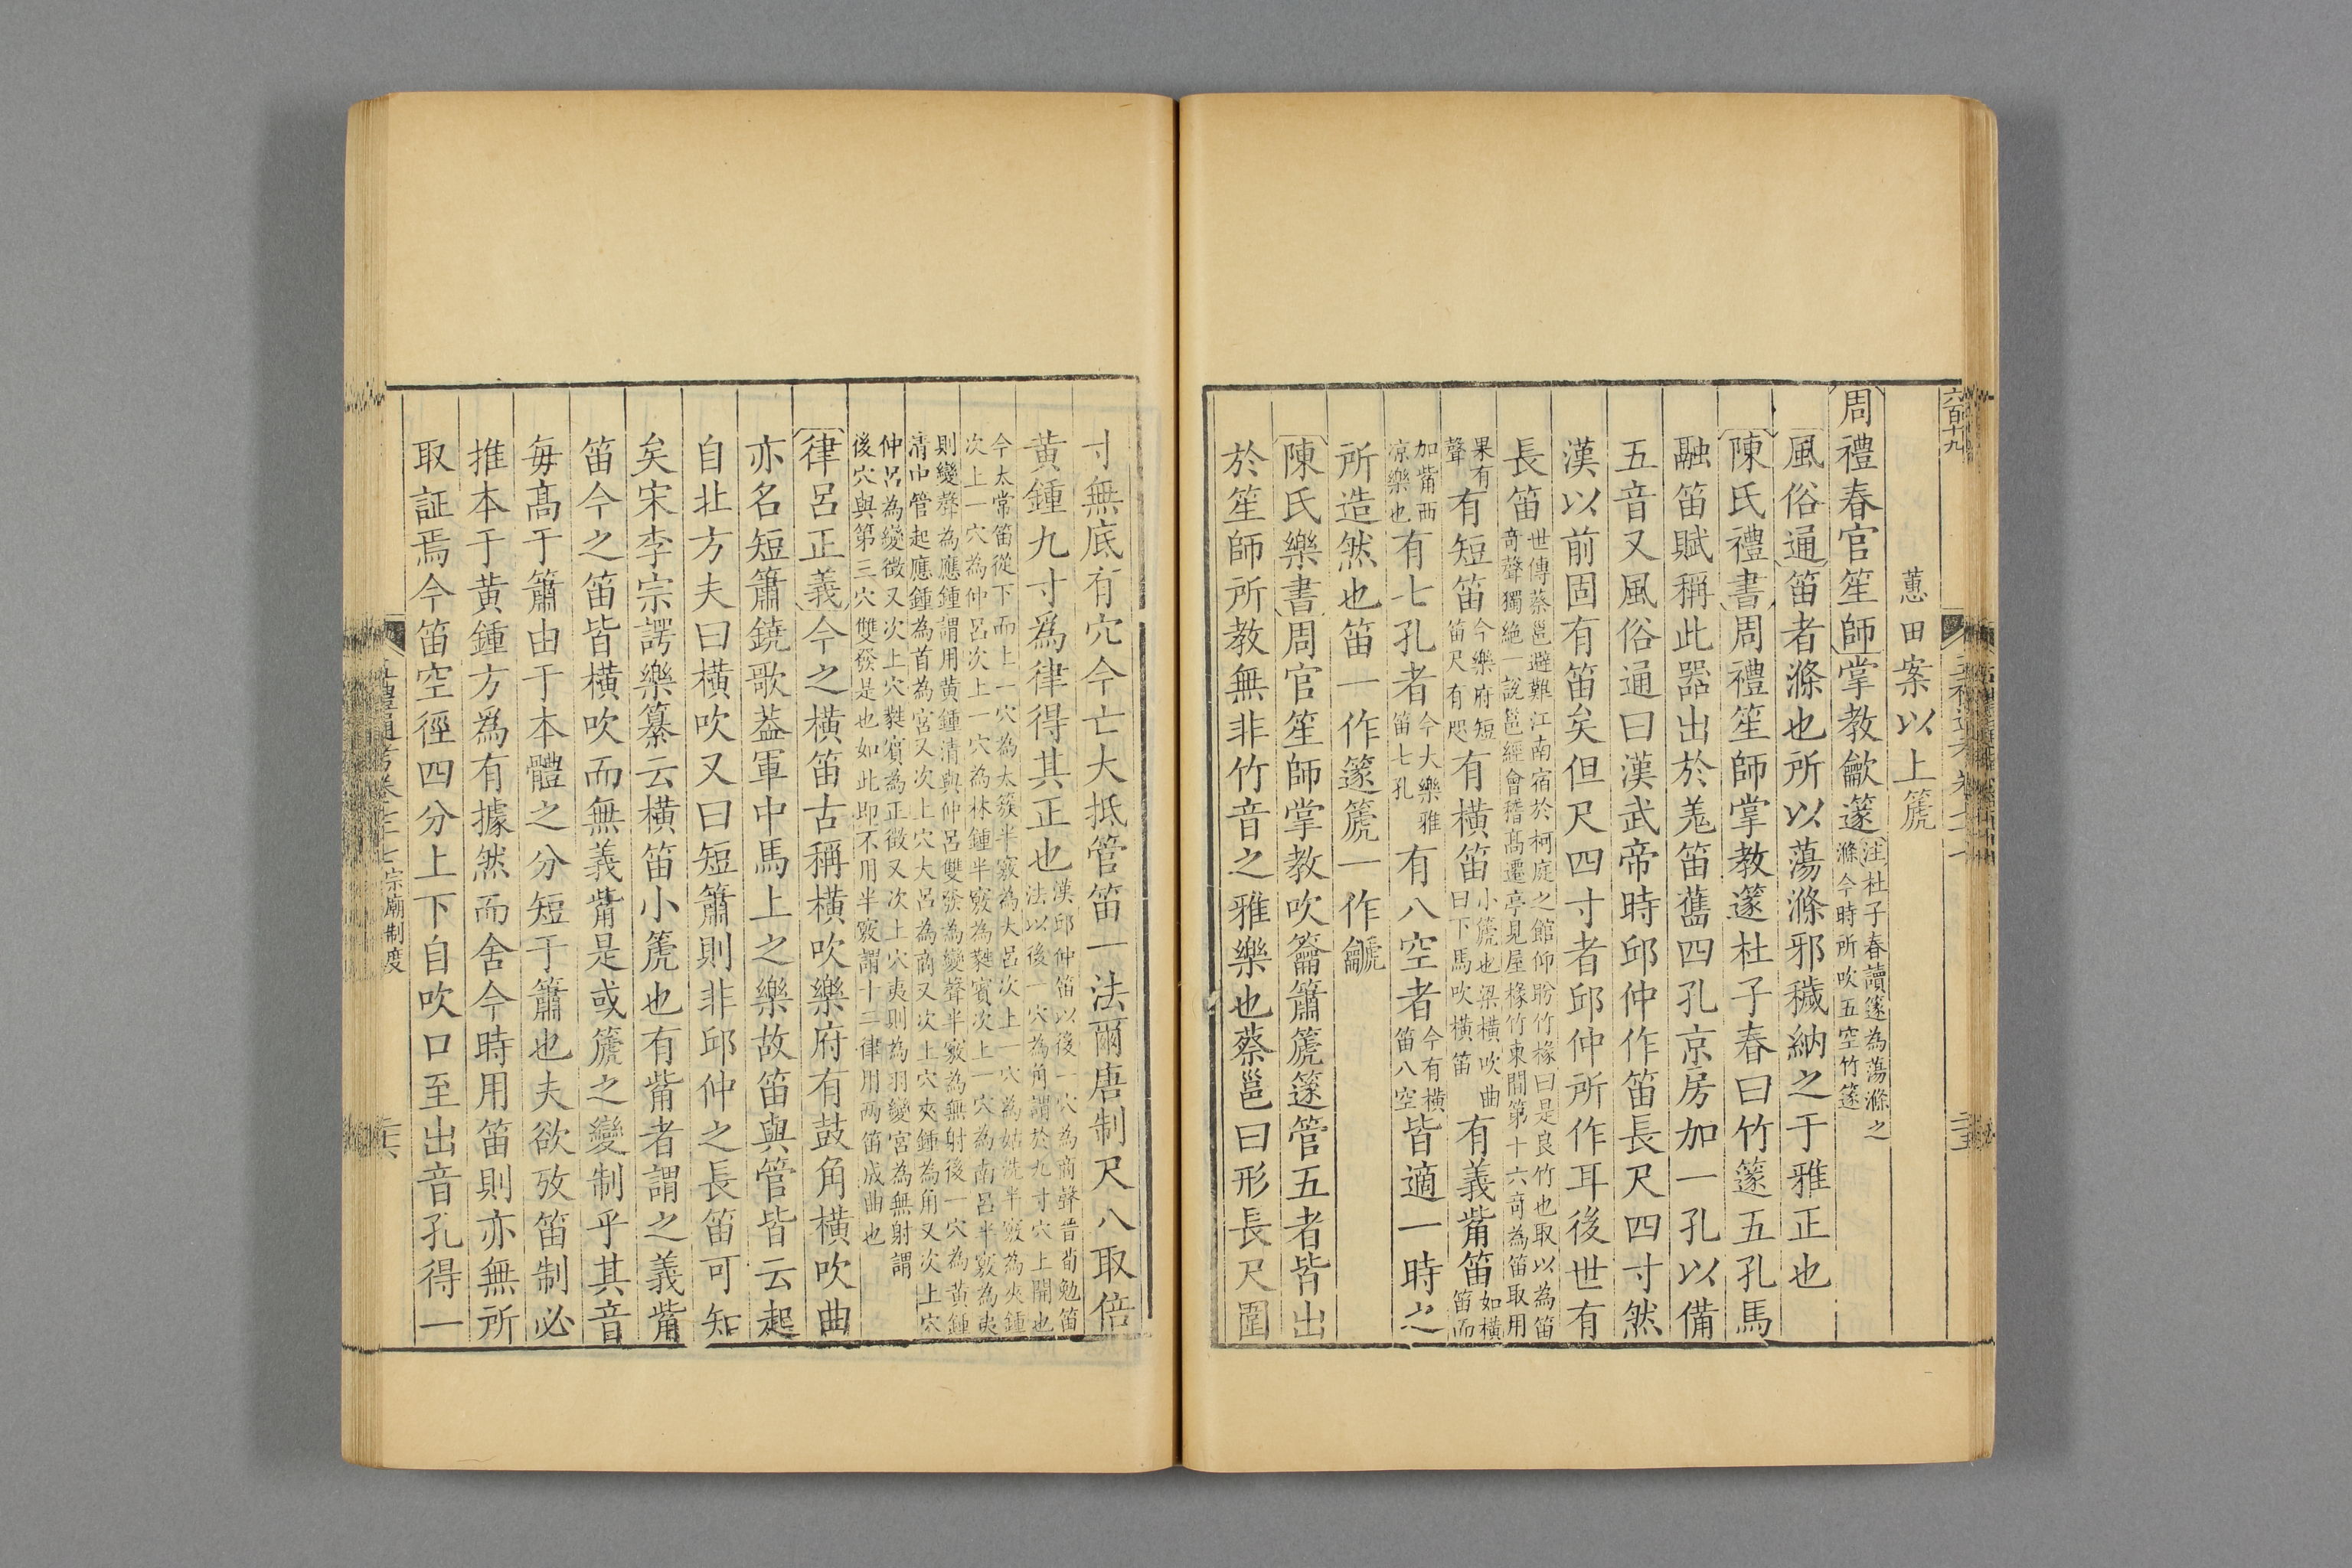 六百十九
蕙田案以上箎
周禮春官笙師掌教龡篴注杜子春讀篴為蕩滌之
滌今時所吹五空竹篴
風俗通笛者滌也所以蕩滌邪穢納之于雅正也
陳氏禮書周禮笙師掌教篴杜子春曰竹篴五孔馬
融笛賦稱此器出於羗笛舊四孔京房加一孔以備
五音又風俗通曰漢武帝時邱仲作笛長尺四寸然
漢以前固有笛矣但尺四寸者邱仲所作耳後世有
長笛世傳蔡邕避難江南宿於柯庭之館仰盼竹椽曰是良竹也取以為笛
奇聲獨絶一說邕經會稽髙遷亭見屋椽竹東間第十六奇為笛取用
果有
聲有短笛今樂府短
笛尺有咫有橫笛小箎也梁橫吹曲
曰下馬吹橫笛有義觜笛如橫
笛而
加觜西
凉樂也有七孔者今大樂雅
笛七孔有八空者今有橫
笛八空皆適一時之
所造然也笛一作篴箎一作龥
陳氏樂書周官笙師掌教吹籥簫箎篴管五者皆出
於笙師所教無非竹音之雅樂也蔡邕曰形長尺圍
寸無底有穴今亡大抵管笛一法爾唐制尺八取倍
黄鍾九寸爲律得其正也漢邱仲笛以後一穴為商聲晉荀勉笛
法以後一穴為角謂於九寸穴上開也
今太常笛從下而上一穴為太簇半竅為大呂次上一穴為姑洗半竅為夾鍾
次上一穴為仲呂次上一穴為林鍾半竅為蕤賓次上一穴為南呂半竅為夷
則變聲為應鍾謂用黄鍾清與仲呂雙發為變聲半竅為無射後一穴為黄鍾
清中管起應鍾為首為宮又次上穴大呂為商又次上穴夾鍾為角又次上穴
仲呂為變徵又次上穴蕤賓為正徵又次上穴夷則為羽變宮為無射謂
後穴與第三穴雙發是也如此即不用半竅謂十二律用兩笛成曲也
律呂正義今之橫笛古稱橫吹樂府有鼓角橫吹曲
亦名短簫鐃歌葢軍中馬上之樂故笛與管皆云起
自北方夫曰橫吹又曰短簫則非邱仲之長笛可知
矣宋李宗諤樂纂云橫笛小箎也有觜者謂之義觜
笛今之笛皆橫吹而無義觜是或箎之變制乎其音
每髙于簫由于本體之分短于簫也夫欲攷笛制必
推本于黄鍾方爲有據然而舍今時用笛則亦無所
取証焉今笛空徑四分上下自吹口至出音孔得一
宗廟制度